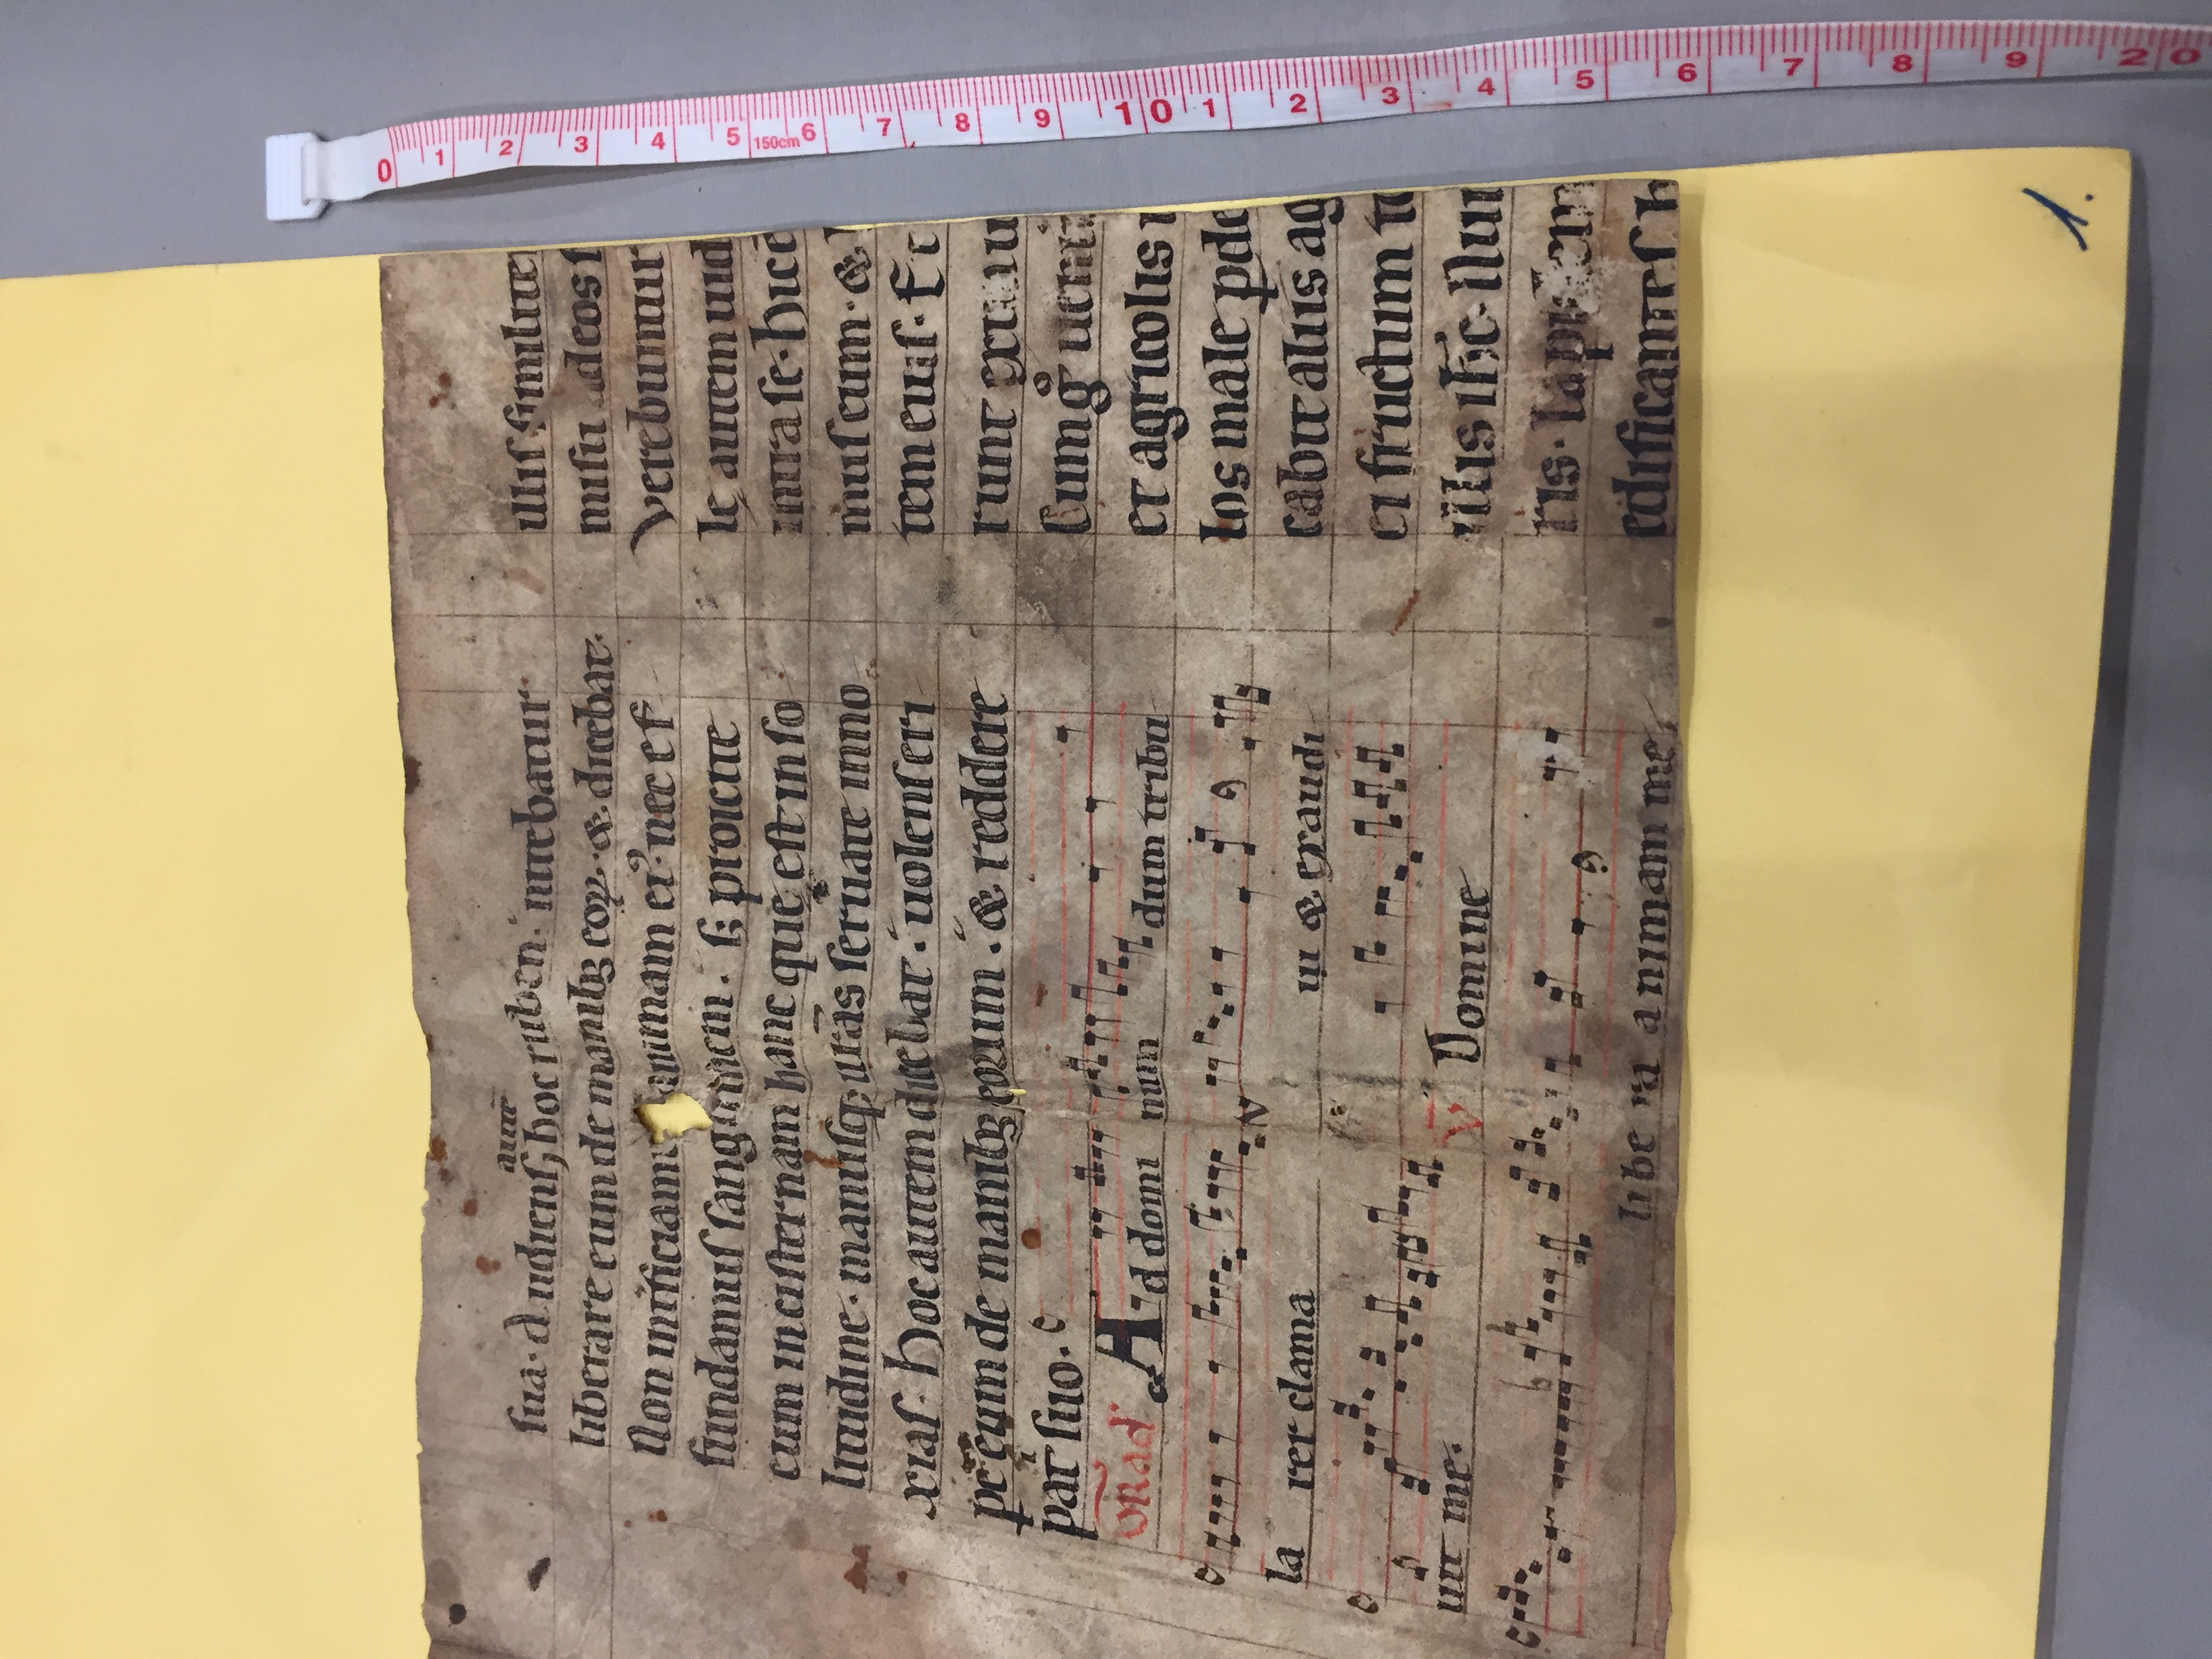 autē
sua. Audiens hoc ruben. nitebatur
liberare eum de manibꝫ eoꝝ. & dicebat.
Non int̄ficiam animam eiꝰ. nec ef
fundamus sanguinem. sꝫ proicite
eum in cisternam hanc quę est in so
litudine. manusqꝫ ur̄as seruate inno
xias. Hoc autem dicebat. uolens eri
pe eum de manibꝫ eorum. & reddere
pat̄ suo.
GRad̄ Ad domi num dum tribu
la rer clama ui & exaudi
uit me. V Domine
libe ra animam me
illis similiter
misit ad eos f
verebuntur
le autem uid
intra se. hic ē
mus eum. &
tem eius. Et
runt ext
Cum gͦ uen
et agricolis
los male ꝑde
cabit aliis ag
ei fructum t
illis ih̄c. Nu
ris. Lapidem
edificantes h
0 1 2 3 4 5 150cm 6 7 8 9 10 1 2 3 4 5 6 7 8 9 20
1.